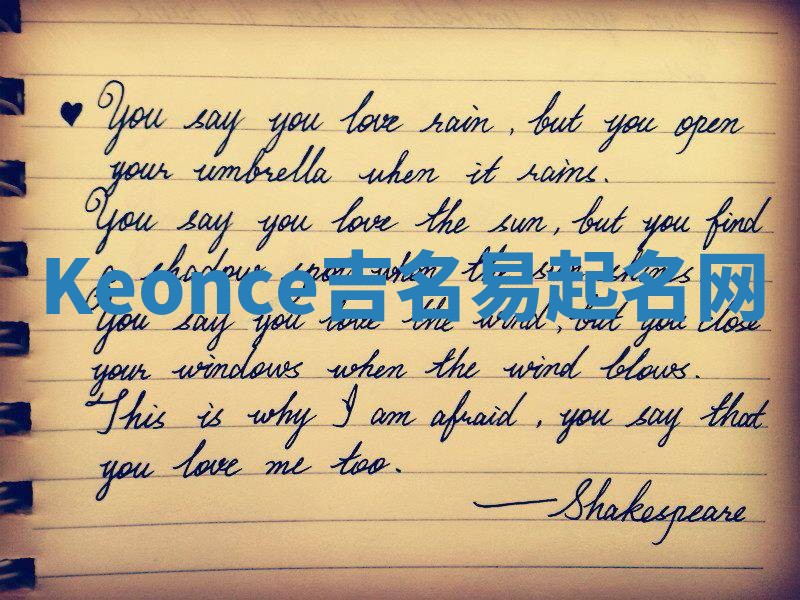 ♥ You say you love rain, but you open
your umbrella when it rains.
You say you love the sun, but you find
a shadow spot when the sun shines
Keonce吉名易起名网
You say you love the wind, but you close
your windows when the wind blows.
This is why I am afraid, you say that
you love me too.
— Shakespeare